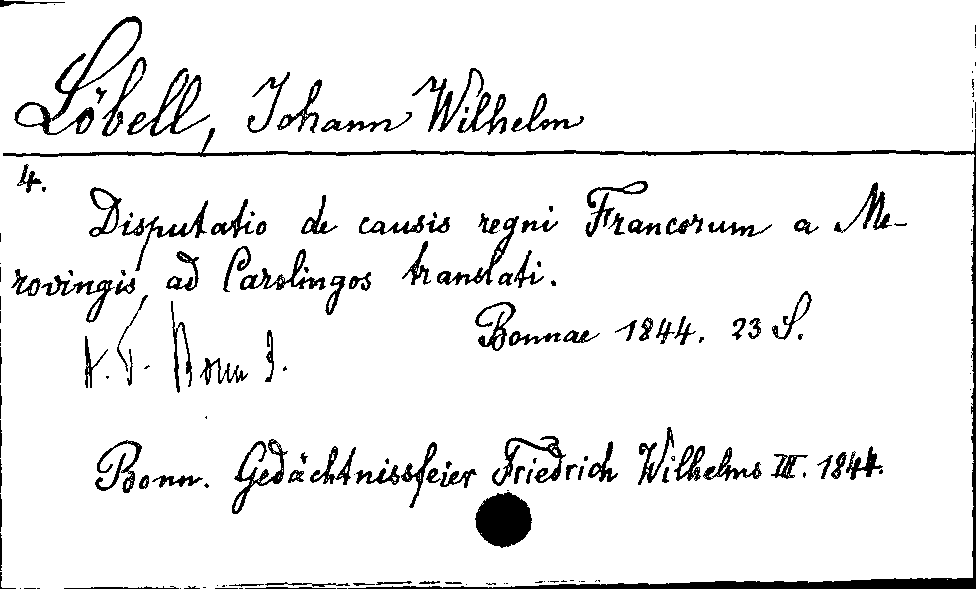 Löbell, Johann Wilhelm
4.
Disputatio de causis regni Francorum a Me-
rovingis ad Carolingos translati.
Bonnae 1844. 23 S.
Bonn
Bonn. Gedächtnissfeier Friedrich Wilhelms III. 1844.